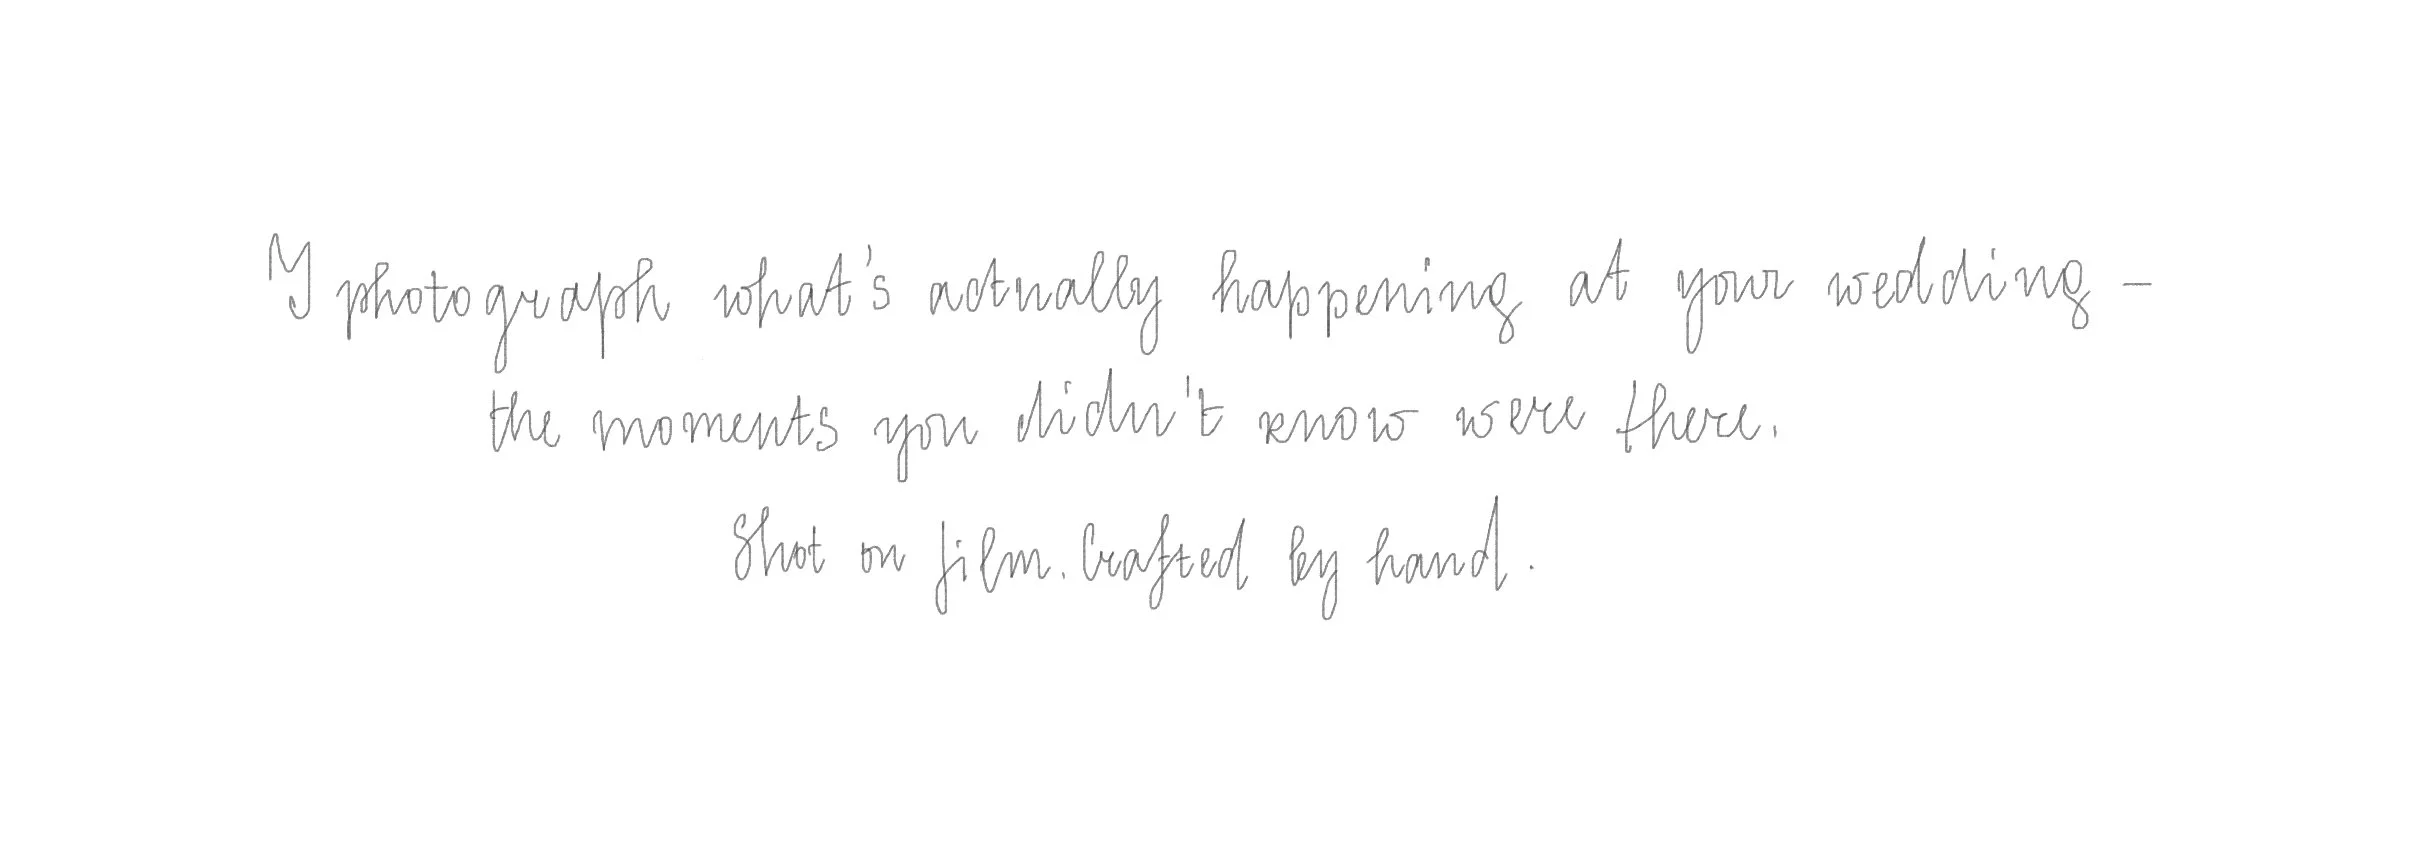 I photograph what's actually happening at your wedding -
the moments you didn't know were there.
Shot on film. Crafted by hand.